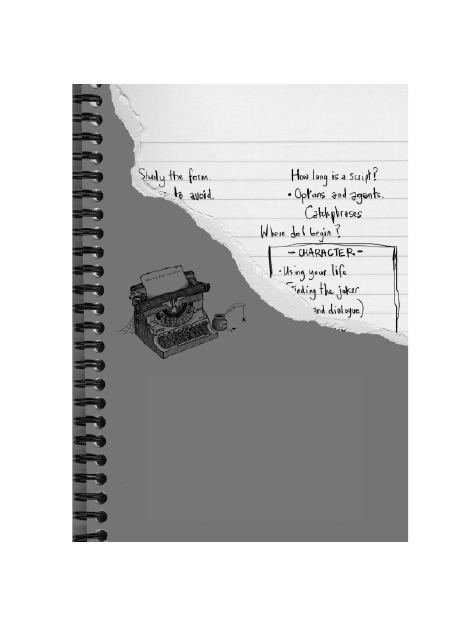 Study the form.
to avoid.
How long is a script?
• Options and agents.
Catchphrases
Where do I begin?
- CHARACTER -
• Using your life
Finding the joker
and dialogue)